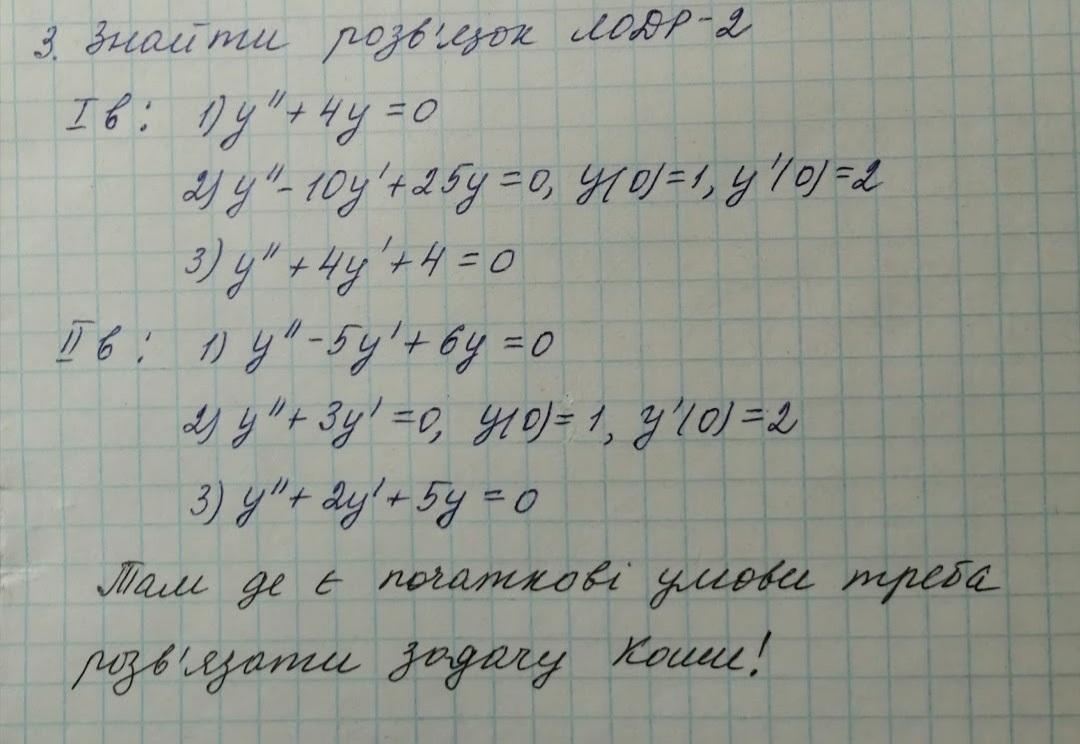 3. Знайти розв'язок ЛОДР-2
I в: 1) y'' + 4y = 0
2) y'' - 10y' + 25y = 0, y(0)=1, y'(0)=2
3) y'' + 4y' + 4 = 0
II в: 1) y'' - 5y' + 6y = 0
2) y'' + 3y' = 0, y(0)=1, y'(0)=2
3) y'' + 2y' + 5y = 0
Там де є початкові умови треба
розв'язати задачу Коши!